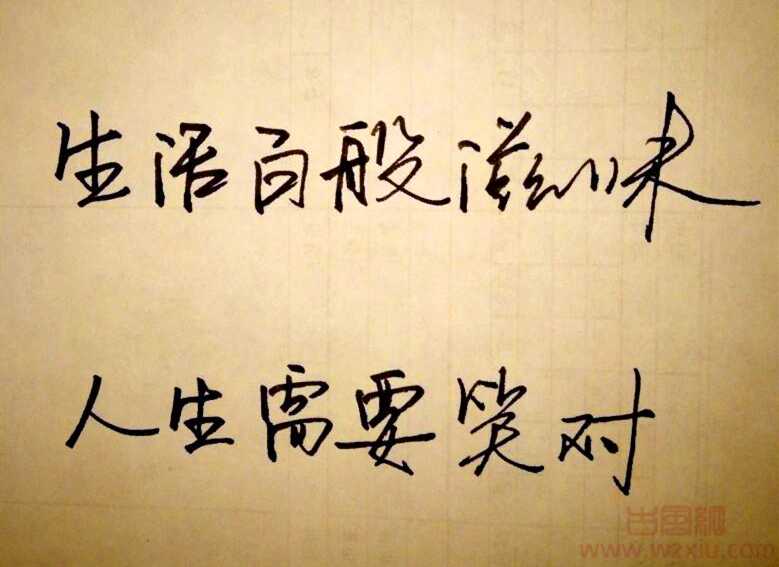 生活百般滋味
人生需要笑对
www.wzxiu.com